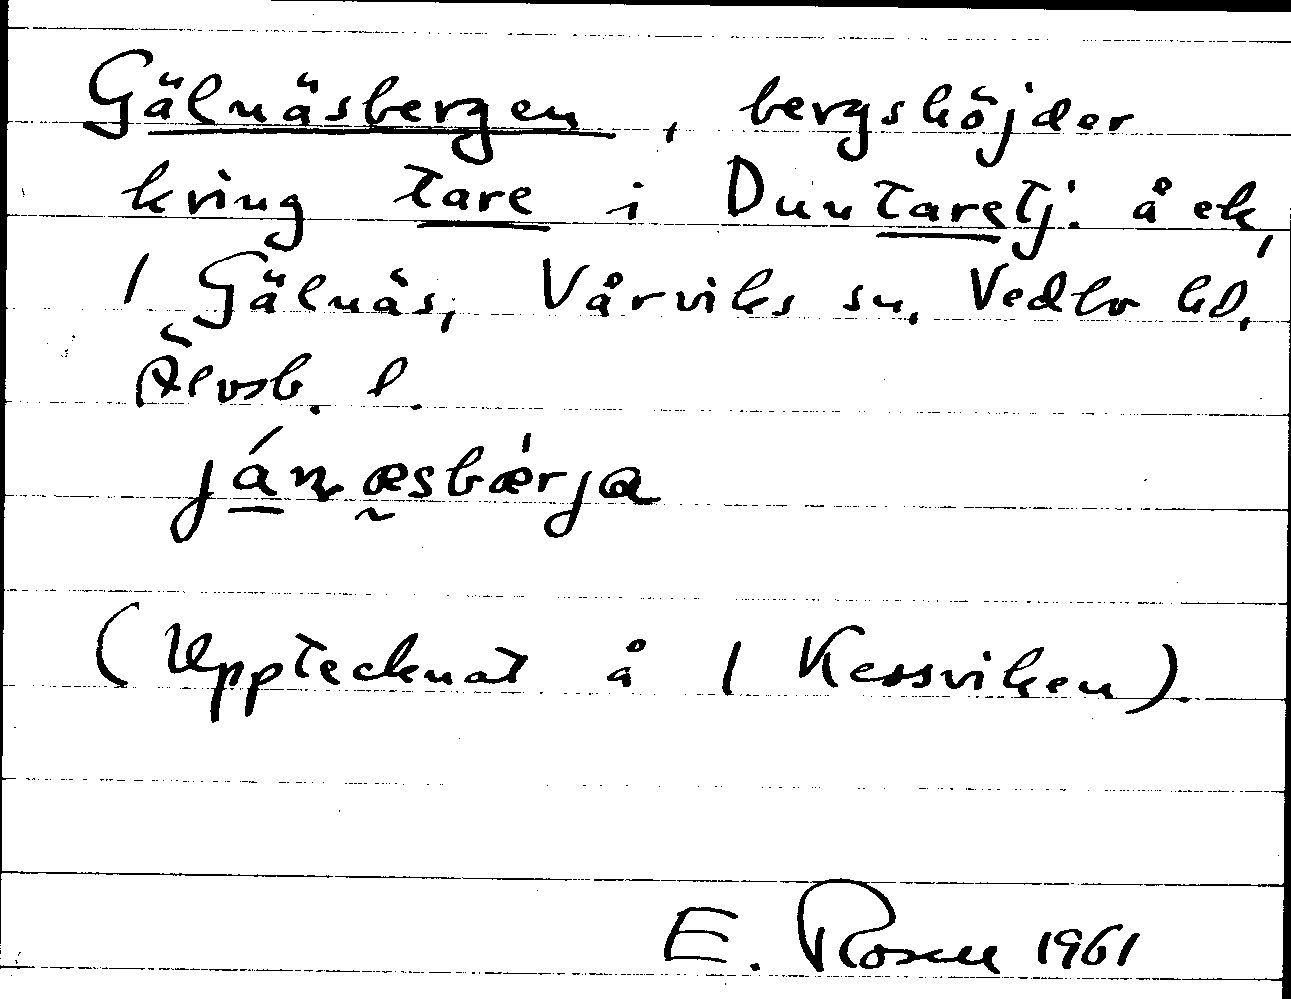 Gälnäsbergen, bergshöjder
kring tare i Duntaretj. å ek,
1 Gälnäs, Vårviks sn, Vedbo hd,
Älvsb. l.
(Upptecknat å 1 Kessviken).
E. Rosell 1961